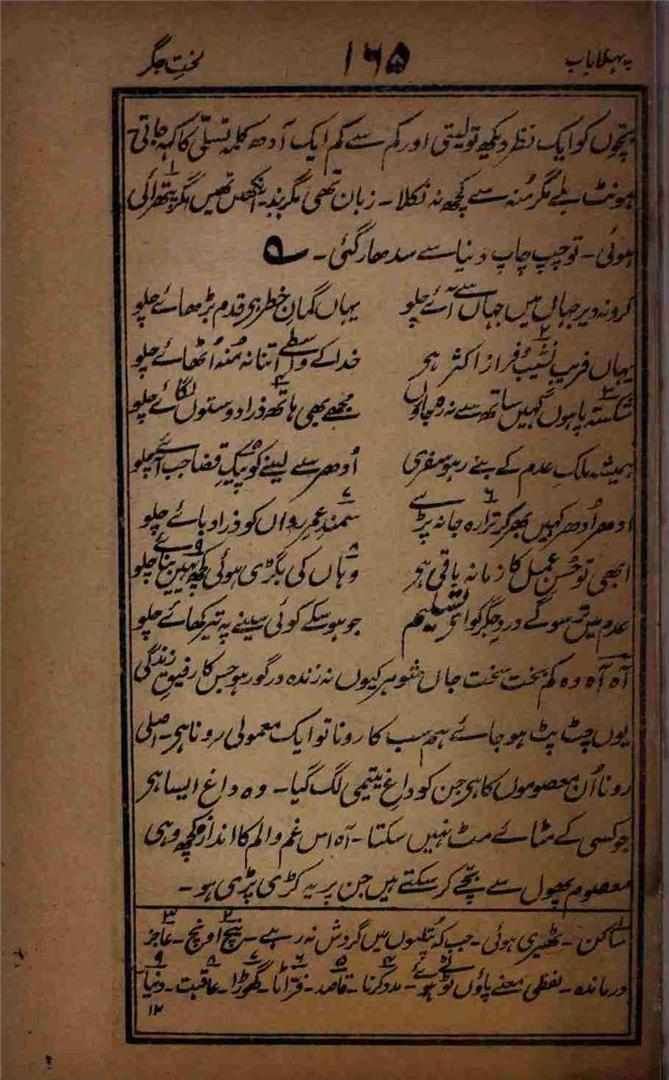 پہلا باب ۱۶۵ لخت جگر
بچوں کو ایک نظر دیکھ تو لیتی اور کم سے کم ایک آدھ کلمہ تسلی کا کہہ جاتی
ہونٹ ہلے مگر مُنہ سے کچھ نہ نکلا۔ زبان تھی مگر بند آنکھیں تھیں مگر پتھرائی
ہوئی۔ تو چپ چاپ دنیا سے سدھار گئی۔ ؎
کرو نہ دیر جہاں میں جہاں سے آئے چلو یہاں گمان خطر ہی قدم بڑھائے چلو
یہاں فریب نشیب و فراز اکثر ہی خدا کے واسطے اتنا نہ مُنہ اُٹھائے چلو
شکستہ پا ہوں کہیں ساتھ سے نہ رہ جاؤں مجھے بھی ہاتھ ذرا دوستوں لگائے چلو
ہمیشہ ملک عدم کے بنے رہو سفری اُودھر سے لینے کو پیک قضا جب آئے چلو
اودھر اُودھر کہیں بھر کر ترارہ جا نہ پڑے سمند عمر رواں کو ذرا دبائے چلو
ابھی تو حُسن عمل کا زمانہ باقی ہی وہاں کی بگڑی ہوئی کچھ یہیں بنائے چلو
عدم میں ترسو گے درد جگر کو ای تسلیم جو ہو سکے کوئی سینے پہ تیر کھائے چلو
آہ آہ وہ کم بخت سخت جاں شوہر کیوں نہ زندہ درگور ہو جس کا رفیق زندگی
یوں چٹ پٹ ہو جائے ہم سب کا رونا تو ایک معمولی رونا ہی۔ اصلی
رونا اُن معصوموں کا ہی جن کو داغ یتیمی لگ گیا۔ وہ داغ ایسا ہی
جو کسی کے مٹائے مٹ نہیں سکتا۔ آہ اس غم والم کا اندازہ کچھ وہی
معصوم پھول سے بچے کر سکتے ہیں جن پر یہ کڑی پڑی ہو۔
۱ ساکن۔ ٹھیری ہوئی۔ جب کہ پتلیوں میں گردش نہ رہے۔ ۲ نیچ اونچ۔ ۳ عاجز
درماندہ۔ لفظی معنے پاؤں ٹوٹے ہوئے۔ ۴ مدد کرنا۔ ۵ قاصد۔ ۶ فرّاٹا۔ ۷ گھوڑا۔ ۸ عاقبت۔ ۹ دنیا
۱۲